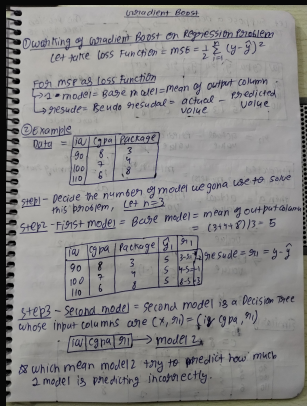 Gradient Boost
① Working of Gradient Boost on Regression Problem
Let take Loss Function = MSE = 1/2 Σ (y-ŷ)²
i=1
For MSE as loss function
→ 1st model = Base model = Mean of output column
→ residue = Pseudo residual = actual value - Predicted value
② Example
Data = iq cgpa Package
90 8 3
100 7 4
110 6 8
Step1 - Decide the number of model we gona use to solve
this problem, Let n=3
Step2 - First model = Base model = mean of output column
= (3+4+8)/3 = 5
iq cgpa Package ŷ1 r1
90 8 3 5 3-5=-2
100 7 4 5 4-5=-1
110 6 8 5 8-5=3
residue = r1 = y-ŷ
Step3 - Second model = Second model is a Decision Tree
whose input columns are (X, r1) = (iq, cgpa, r1)
→ iq cgpa r1 → model 2
which mean model 2 try to predict how much
1 model is predicting incorrectly.